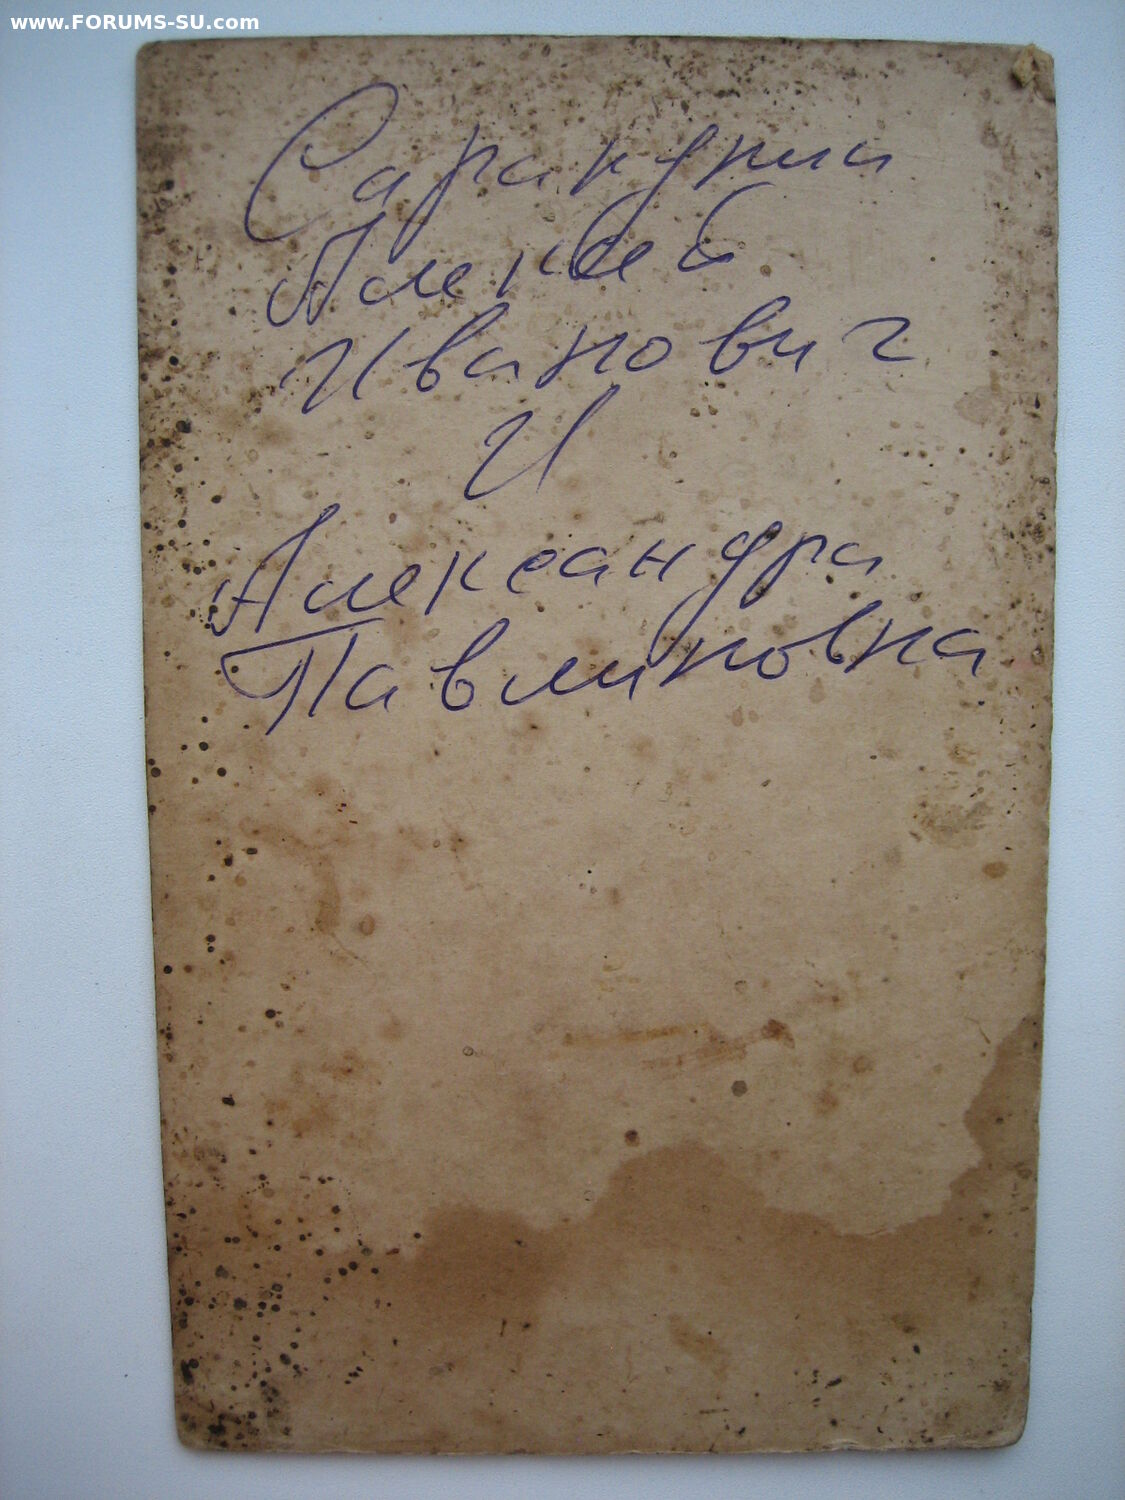 www.FORUMS-SU.com
Алексей
Иванович
И
Александра
Павлиновна